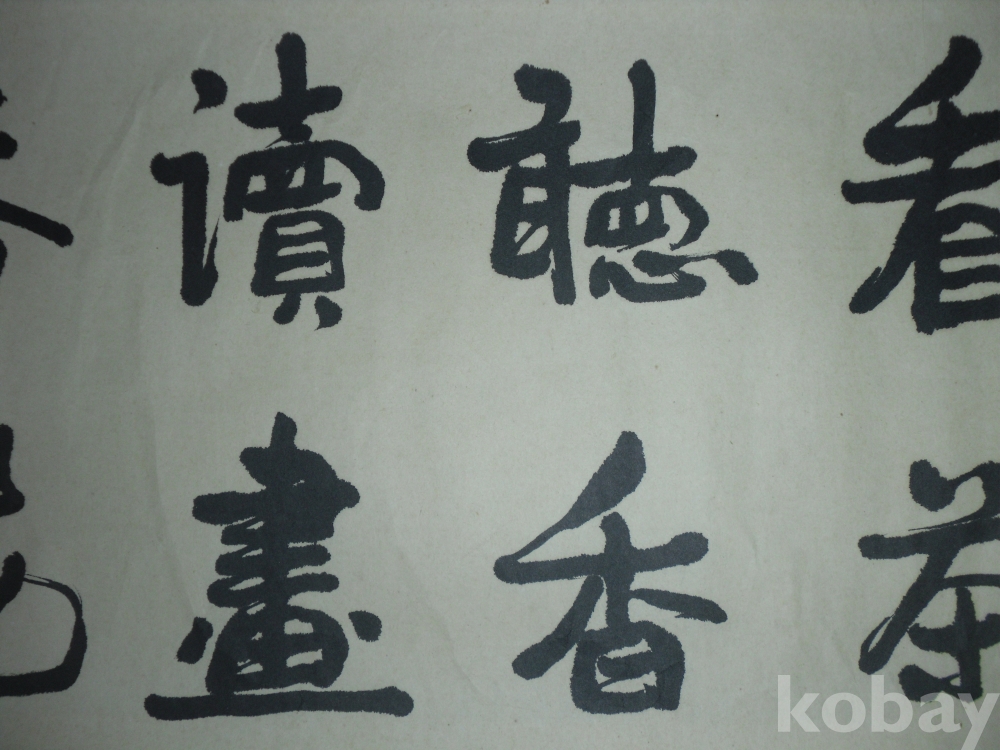 看茶
聽香
讀畫
kobay